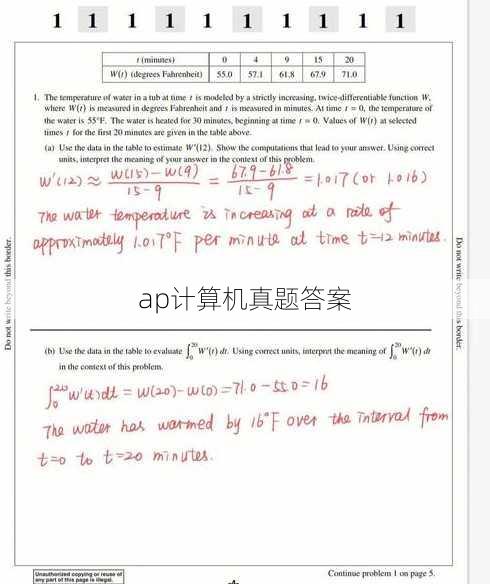 1 1 1 1 1 1 1 1 1 1
t (minutes) 0 4 9 15 20
W(t) (degrees Fahrenheit) 55.0 57.1 61.8 67.9 71.0
1. The temperature of water in a tub at time t is modeled by a strictly increasing, twice-differentiable function W,
where W(t) is measured in degrees Fahrenheit and t is measured in minutes. At time t = 0, the temperature of
the water is 55°F. The water is heated for 30 minutes, beginning at time t = 0. Values of W(t) at selected
times t for the first 20 minutes are given in the table above.
(a) Use the data in the table to estimate W'(12). Show the computations that lead to your answer. Using correct
units, interpret the meaning of your answer in the context of this problem.
W'(12) ≈ W(15)-W(9) / 15-9 = 67.9-61.8 / 15-9 = 1.017 (or 1.016)
The water temperature is increasing at a rate of
approximately 1.017°F per minute at time t=12 minutes.
Do not write beyond this border.
Do not write beyond this border.
ap计算机真题答案
(b) Use the data in the table to evaluate ∫₀²⁰ W'(t) dt. Using correct units, interpret the meaning of ∫₀²⁰ W'(t) dt
in the context of this problem.
∫₀²⁰ W'(t)dt = W(20)-W(0)=71.0-55.0=16
The water has warmed by 16°F over the interval from
t=0 to t=20 minutes.
Unauthorized copying or reuse of
any part of this page is illegal.
Continue problem 1 on page 5.